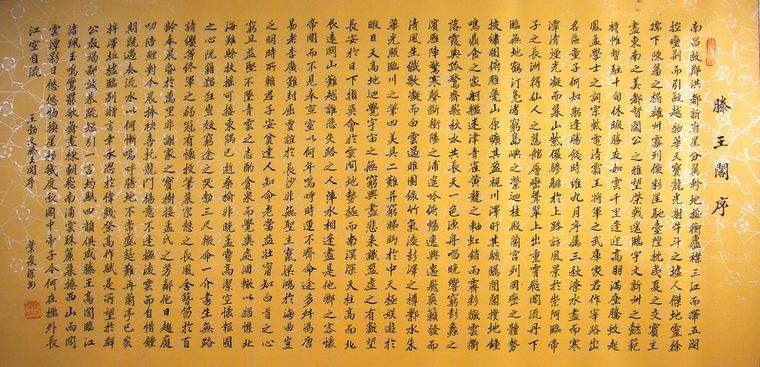 滕王閣序
南昌故郡洪都新府星分翼軫地接衡廬襟三江而帶五湖
控蠻荊而引甌越物華天寶龍光射牛斗之墟人傑地靈徐
孺下陳蕃之榻雄州霧列俊彩星馳臺隍枕夷夏之交賓主
盡東南之美都督閻公之雅望棨戟遙臨宇文新州之懿範
襜帷暫駐十旬休暇勝友如雲千里逢迎高朋滿座騰蛟起
鳳孟學士之詞宗紫電清霜王將軍之武庫家君作宰路出
名區童子何知躬逢勝餞時維九月序屬三秋潦水盡而寒
潭清煙光凝而暮山紫儼驂騑於上路訪風景於崇阿臨帝
子之長洲得仙人之舊館層巒聳翠上出重霄飛閣流丹下
臨無地鶴汀鳧渚窮島嶼之縈迴桂殿蘭宮列岡巒之體勢
披繡闥俯雕甍山原曠其盈視川澤盱其駭矚閭閻撲地鐘
鳴鼎食之家舸艦迷津青雀黃龍之軸虹銷雨霽彩徹雲衢
落霞與孤鶩齊飛秋水共長天一色漁舟唱晚響窮彭蠡之
濱雁陣驚寒聲斷衡陽之浦遙吟俯暢逸興遄飛爽籟發而
清風生纖歌凝而白雲遏睢園綠竹氣凌彭澤之樽鄴水朱
華光照臨川之筆四美具二難并窮睇眄於中天極娛遊於
暇日天高地迥覺宇宙之無窮興盡悲來識盈虛之有數望
長安於日下指吳會於雲間地勢極而南溟深天柱高而北
辰遠關山難越誰悲失路之人萍水相逢盡是他鄉之客懷
帝閽而不見奉宣室以何年嗚呼時運不齊命途多舛馮唐
易老李廣難封屈賈誼於長沙非無聖主竄梁鴻於海曲豈
乏明時所賴君子安貧達人知命老當益壯寧知白首之心
窮且益堅不墜青雲之志酌貪泉而覺爽處涸轍以猶懽北
海雖賒扶搖可接東隅已逝桑榆非晚孟嘗高潔空懷報國
之心阮籍猖狂豈效窮途之哭勃三尺微命一介書生無路
請纓等終軍之弱冠有懷投筆慕宗愨之長風舍簪笏於百
齡奉晨昏於萬里非謝家之寶樹接孟氏之芳鄰他日趨庭
叨陪鯉對今晨捧袂喜托龍門楊意不逢撫凌雲而自惜鍾
期既遇奏流水以何慚嗚呼勝地不常盛筵難再蘭亭已矣
梓澤丘墟臨別贈言幸承恩於偉餞登高作賦是所望於群
公敢竭鄙誠恭疏短引一言均賦四韻俱成滕王高閣臨江
渚佩玉鳴鸞罷歌舞畫棟朝飛南浦雲珠簾暮捲西山雨閑
雲潭影日悠悠物換星移幾度秋閣中帝子今何在檻外長
江空自流
王勃文滕王閣序